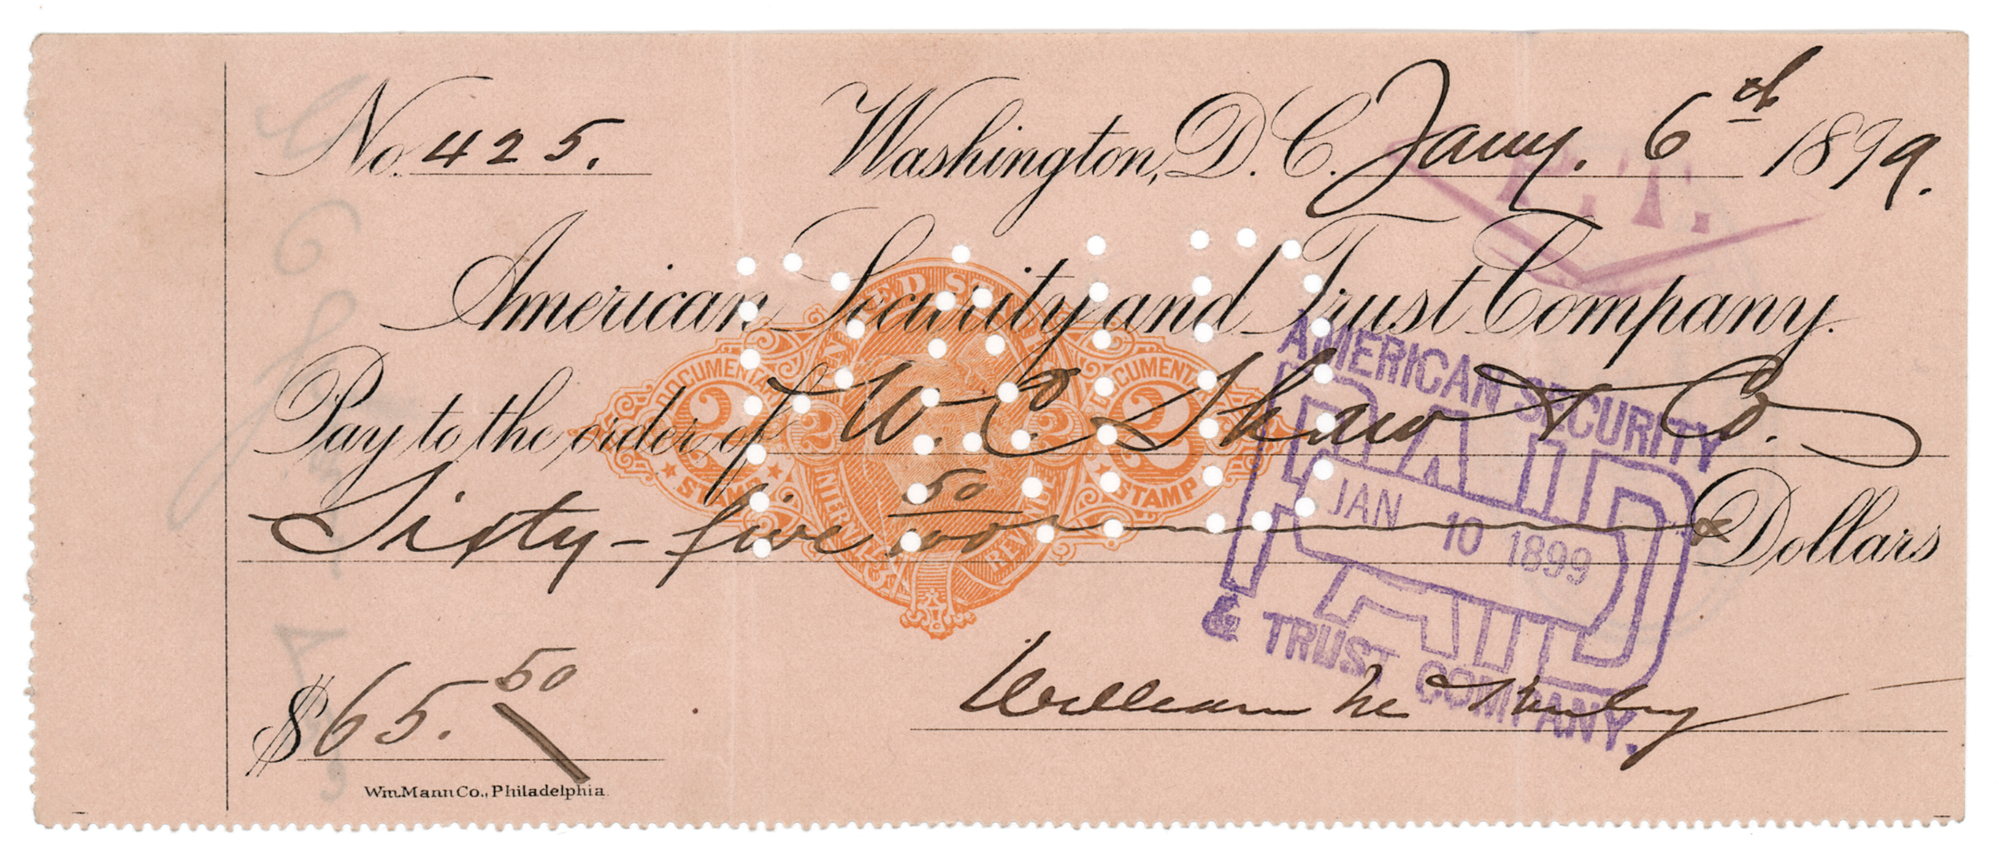 No. 425.
Washington, D.C. Jany. 6th 1899.
P.T.
American Security and Trust Company.
Pay to the order of W. C. Shaw & Co.
Sixty-five 50/100 Dollars
$65. 50
William McKinley
Wm. Mann Co., Philadelphia.
UNITED STATES INTERNAL REVENUE
DOCUMENTARY
2 2
STAMP
2 2
DOCUMENTARY
STAMP
AMERICAN SECURITY
PAID
JAN 10 1899
PAID
& TRUST COMPANY.